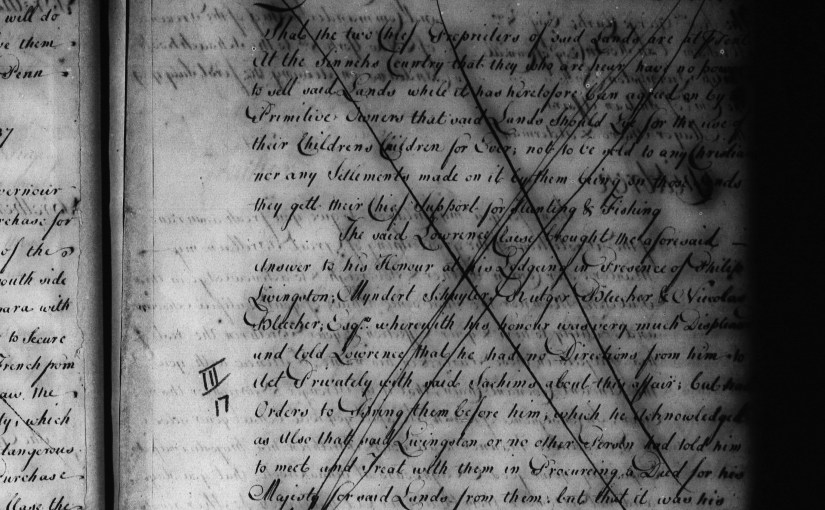 will do
ve them
Penn
7
vernour
rchase for
of the
outh side
mara with
to Secure
French from
aw the
ty; which
dangerous
Purchase
That the two Chief Proprieters of said Lands are at
At the Sinnekes Country that they who are hear have no power
to sell said Lands while it has heretofore been agreed on by
Primitive Owners that said Lands should for the use
their Childrens Children for Ever; not to be sold to any Christian
nor any Settlements made on it by them being on those Lands
they gett their Chief Support for Hunting & Fishing
The said Lowrence Claese brought the aforesaid
Answer to his Honour at his Lodgeing in Presence of Philip
Livingston, Myndert Schuyler, Rutger Bleeker & Nicolas
Bleeker, Esqrs. whereuith his honour was very much Displeased
and told Lowrence that he had no Directions from him to
Act Privately with said Sachims about this affair; but had
III
17
Orders to Bring them before him, which he Acknowledged
as Also that said Livingston or no other Person had told him
to meet and Treat with them in Procureing a Deed for his
Majesty for said Lands from them. but that it was his